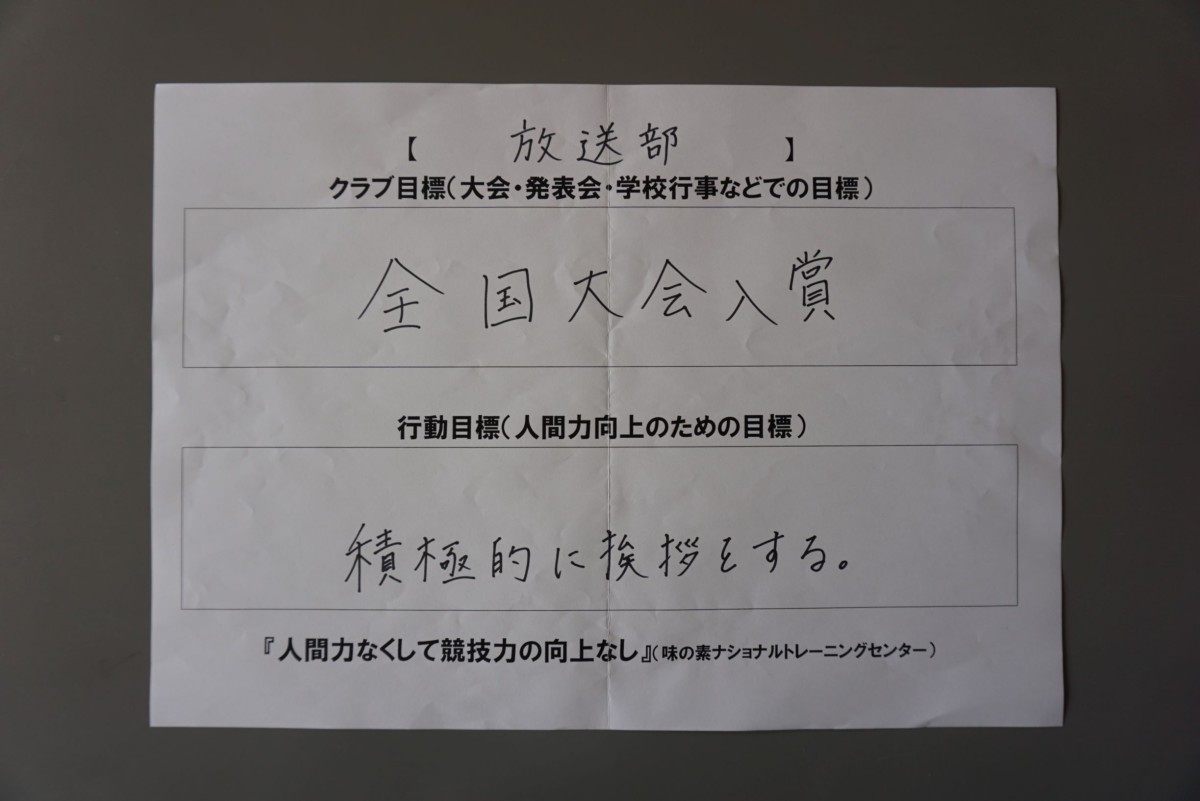 【 放送部 】
クラブ目標(大会・発表会・学校行事などでの目標)
全国大会入賞
行動目標(人間力向上のための目標)
積極的に挨拶をする。
『人間力なくして競技力の向上なし』(味の素ナショナルトレーニングセンター)